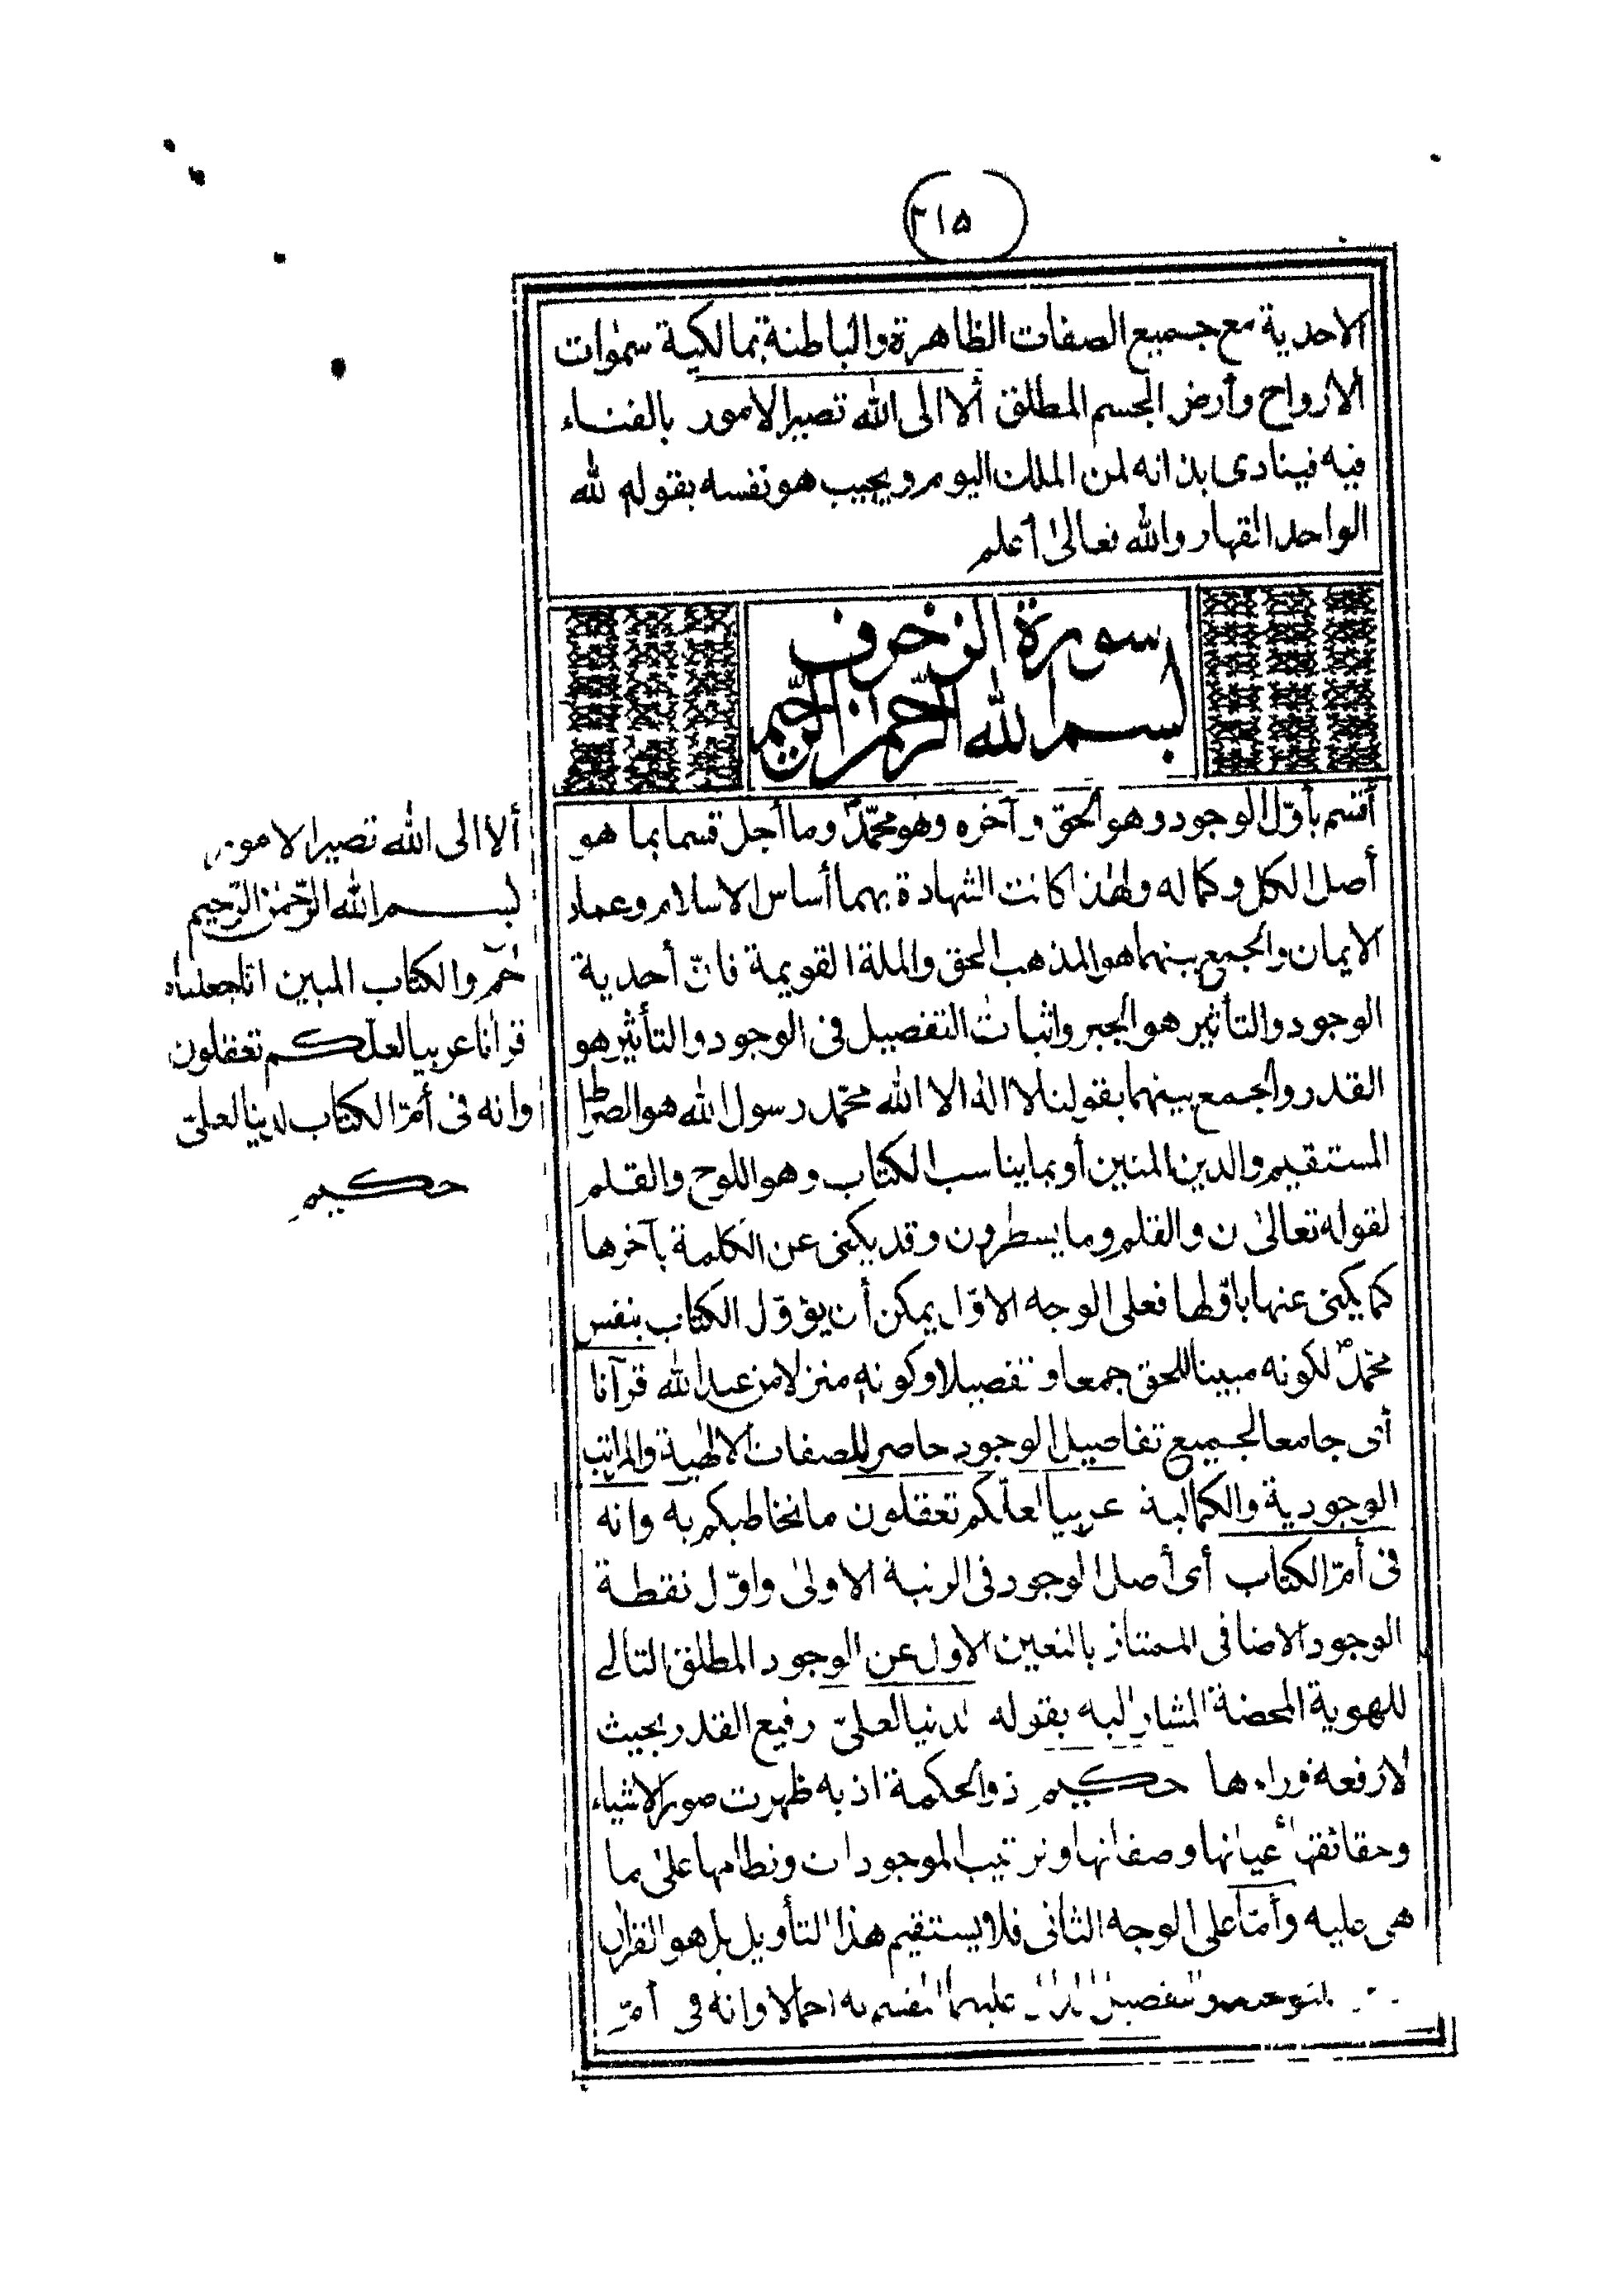 ٢١٥
الاحدية مع جميع الصفات الظاهرة والباطنة بمالكية سمٰوات
الارواح وأرض الجسم المطلق ألا الى الله تصير الامور بالفناء
فيه فينادى بذاته لمن الملك اليوم ويجيب هو نفسه بقوله لله
الواحد القهار والله تعالىٰ أعلم
سورة الزخرف
بسم الله الرّحمٰن الرّحيم
أقسم بأوّل الوجود وهو الحق وآخره وهو محمّدؐ وما أجل قسما بما هو
أصل الكل وكماله ولهٰذا كانت الشهادة بهما أساس الاسلام وعماد
الايمان والجمع بينهما هو المذهب الحق والملة القويمة فانّ أحدية
الوجود والتأثير هو الجبر واثبات التفصيل فى الوجود والتأثير هو
القدر والجمع بينهما بقولنا لا الٰه الا الله محمّد رسول الله هو الصرٰط
المستقيم والدين المتين أو بما يناسب الكتاب وهو اللوح والقلم
لقوله تعالىٰ ن والقلم وما يسطرون وقد يكنى عن الكلمة بآخرها
كما يكنى عنها بأوّلها فعلى الوجه الاوّل يمكن أن يؤوّل الكتاب بنفس
محمّدؐ لكونه مبينا للحق جمعا وتفصيلا وكونه منزلا من عند الله قرآنا
أى جامعا لجميع تفاصيل الوجود حاصر للصفات الالٰهية والمراتب
الوجودية والكمالية عربيا لعلّكم تعقلون ما نخاطبكم به وانه
فى أمّ الكتاب أى أصل الوجود فى الرتبة الاولىٰ واوّل نقطة
الوجود الاضافى الممتاز بالتعين الاول عن الوجود المطلق التالى
للهوية المحضة المشار اليه بقوله لدينا لعلىّ رفيع القدر بحيث
لا رفعة وراءها حكيم ذو الحكمة اذ به ظهرت صور الاشياء
وحقائقها أعيانها وصفاتها وترتيب الموجودات ونظامها علىٰ ما
هى عليه وأمّا على الوجه الثانى فلا يستقيم هذا التأويل بل هو القرآن
التوحيد والتفصيل عليهما القسم به اجمالا وانه فى أمّ
ألا الى الله تصير الامور
بسم الله الرّحمٰن الرّحيم
حٰمٓ والكتاب المبين انّا جعلناه
قرآنا عربيا لعلّكم تعقلون
وانه فى أمّ الكتاب لدينا لعلىّ
حكيم